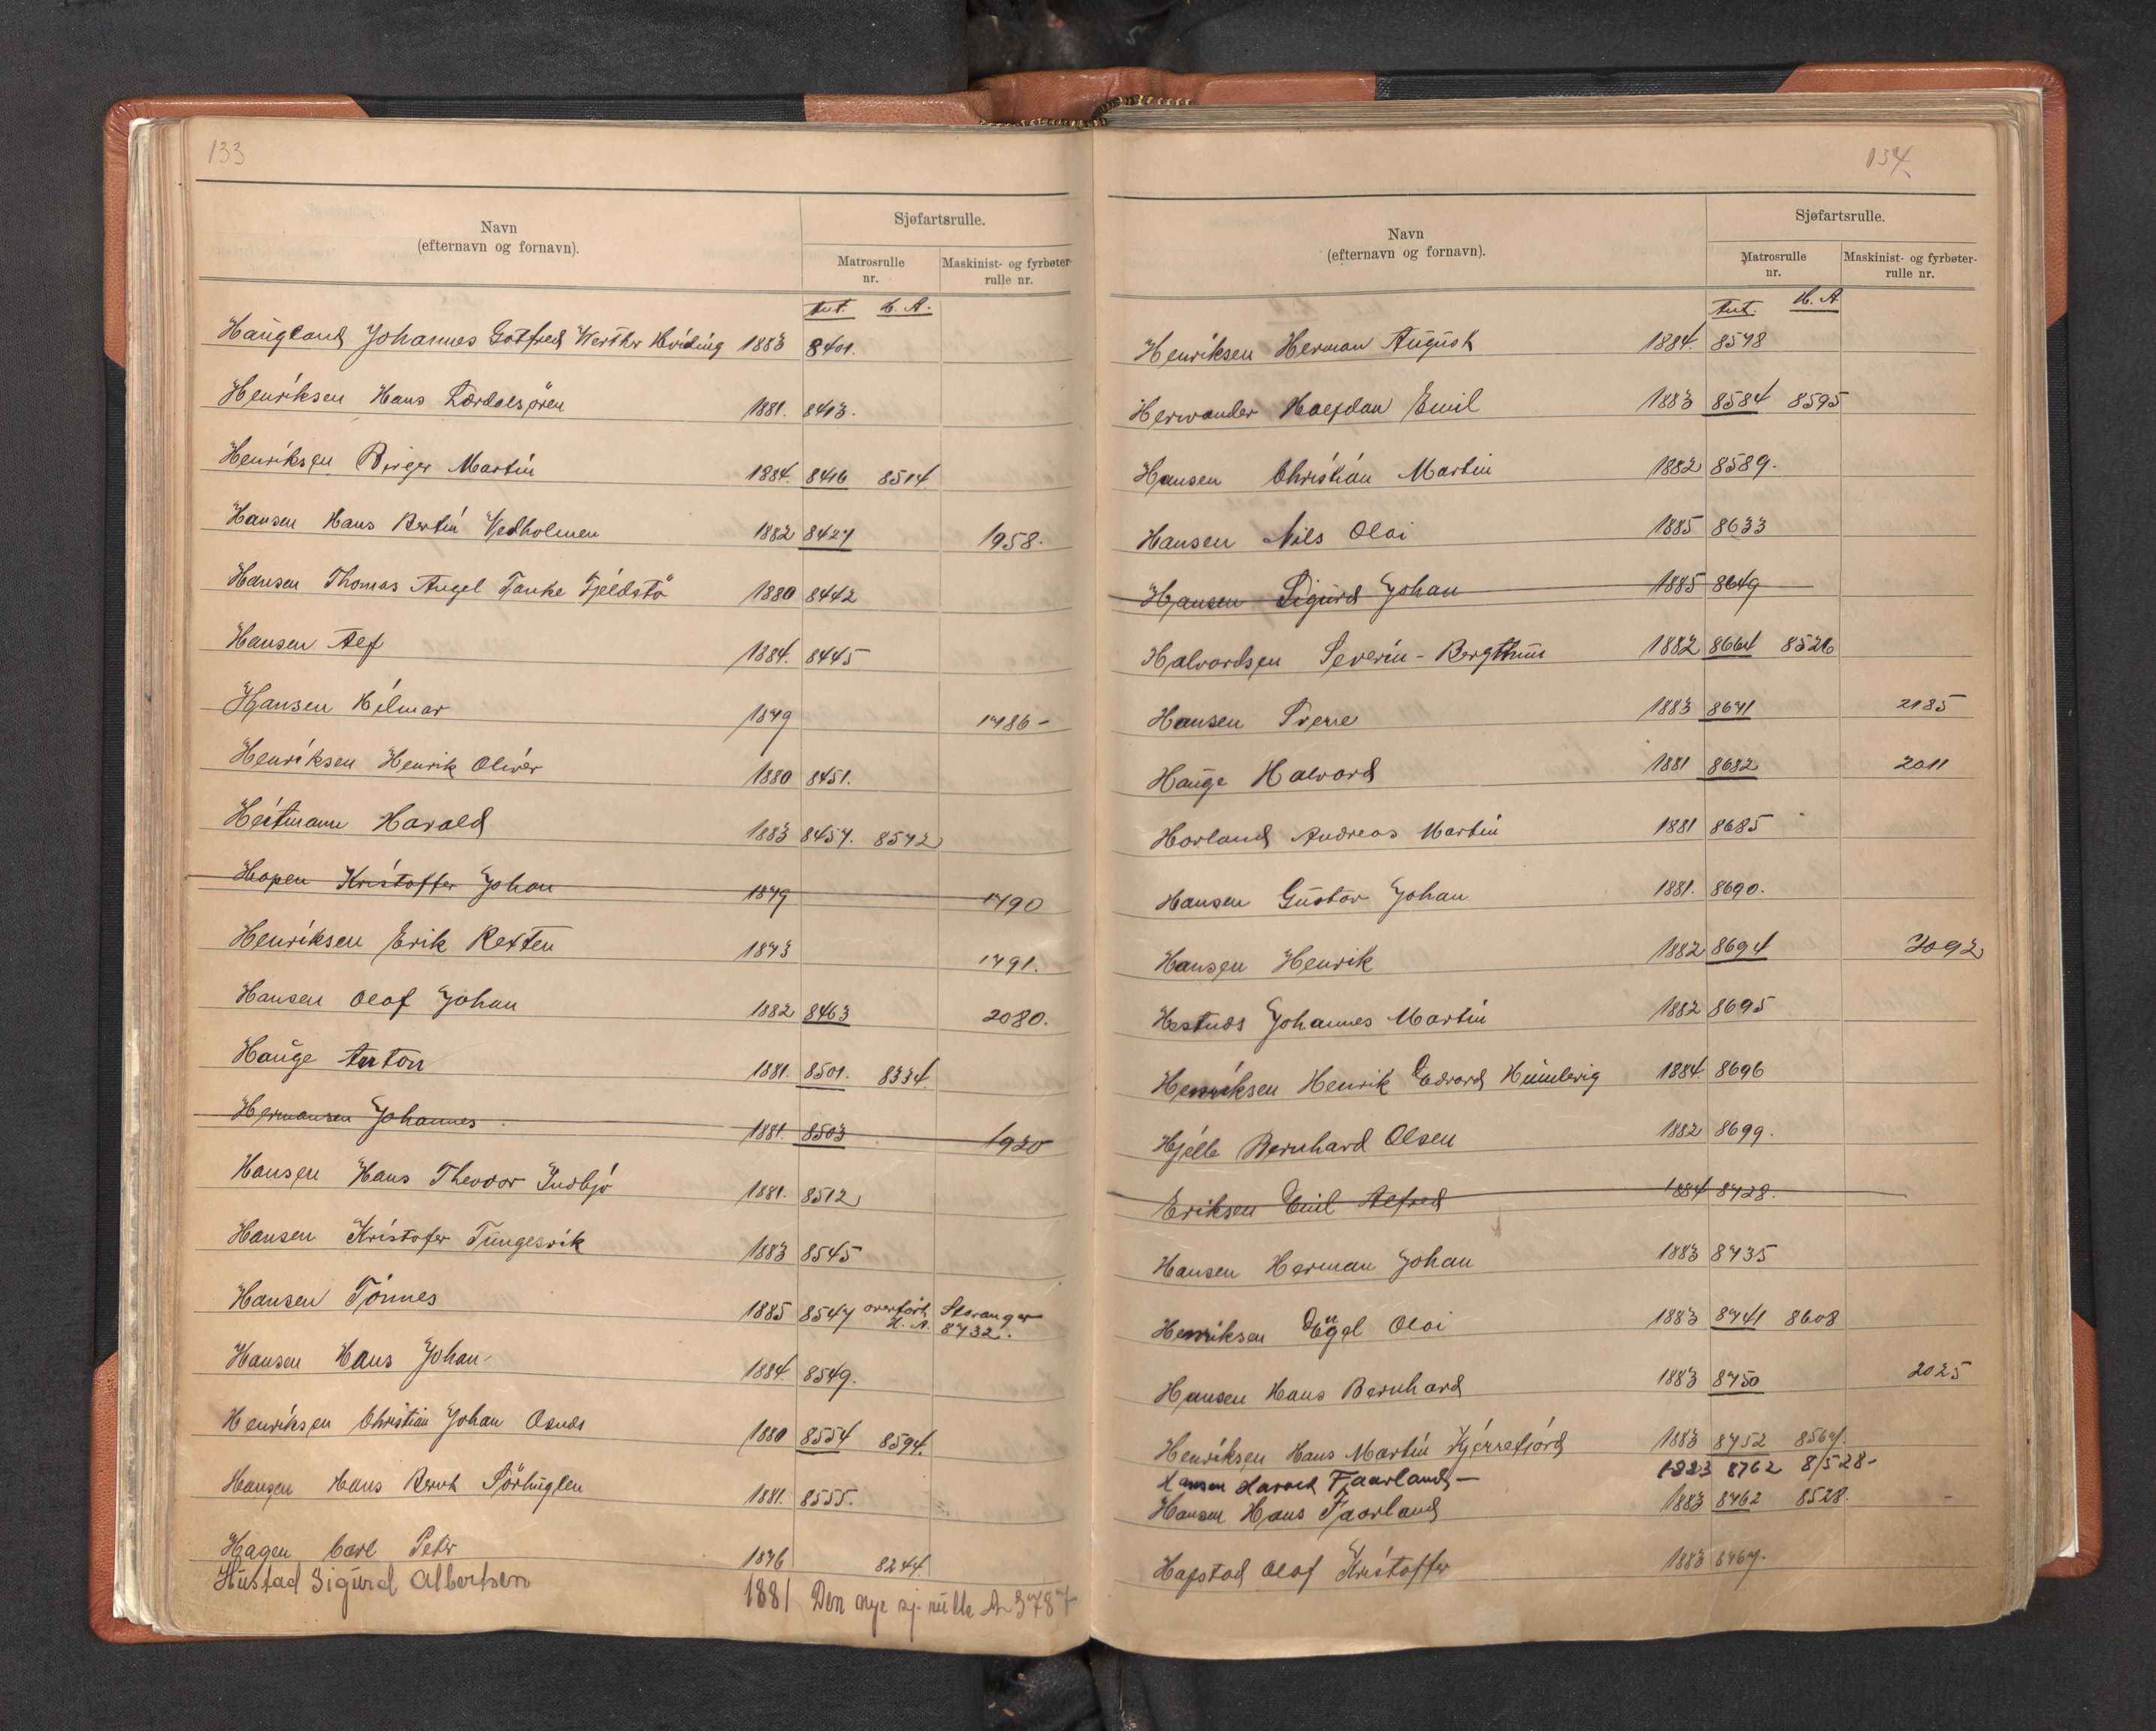 133
Navn
(efternavn og fornavn).
Sjøfartsrulle.
Matrosrulle
nr.
Maskinist- og fyrbøter-
rulle nr.
Int. H. A.
Haugland Johannes Gotfred Werther Hviding 1883 8401.
Henriksen Hans Lærdalsøren 1881. 8413.
Henriksen Birger Martin 1884. 8416 8514.
Hansen Hans Bertin Vedholmen 1882 8427 1958.
Hansen Thomas Angel Tanke Fjeldstø 1880 8442
Hansen Alf 1884. 8445
Hansen Hilmar 1879 1786-
Henriksen Henrik Oliver 1880 8451.
Heitmann Harald 1883 8457. 8572
Hopen Kristoffer Johan 1879 1790
Henriksen Erik Rexten 1873 1791.
Hansen Olaf Johan 1882 8463 2080.
Hauge Anton 1881. 8501. 8334.
Hermansen Johannes 1881. 8503 1920
Hansen Hans Theodor Indbjo 1881. 8512
Hansen Kristofer Tungesvik 1883 8545
Hansen Tønnes 1885 8547 overført Stavanger
H. A. 8732.
Hansen Hans Johan 1884. 8549.
Henriksen Christian Johan Osnes 1880 8554 8594.
Hansen Hans Bernt Sørhuglen 1881. 8555.
Hagen Carl Peter 1876 8244.
Hustad Sigurd Albertsen 1881 Den nye sj. rulle A 3787
134
Navn
(efternavn og fornavn).
Sjøfartsrulle.
Matrosrulle
nr.
Maskinist- og fyrbøter-
rulle nr.
Int. H. A
Henriksen Herman August 1884. 8578
Herwander Halfdan Emil 1883 8584 8595
Hansen Christian Martin 1882 8589.
Hansen Nils Olai 1885 8633
Hansen Sigurd Johan 1885 8649
Halvordsen Severin - Bergthun 1882 8664 8526
Hansen Sverre 1883 8671 2185
Hauge Halvard 1881 8682 2011
Horland Andreas Martin 1881 8685
Hansen Gustav Johan 1881. 8690.
Hansen Henrik 1882 8694 2092
Hestnes Johannes Martin 1882 8695
Henriksen Henrik Edvard Humlevig 1884. 8696
Hjelle Bernhard Olsen 1882 8699.
Eriksen Emil Alfred 1884 8728.
Hansen Herman Johan 1883 8735
Henriksen Egel Olai 1883 8741 8608
Hansen Hans Bernhard 1883 8750 2025
Henriksen Hans Martin Kjerrefjord 1883 8752 8567.
Hansen Harald Fjaarland - 1883 8762 8/528-
Hansen Hans Fjaarland 1883 8762 8528. -
Hafstad Olaf Kristoffer 1883 8767.